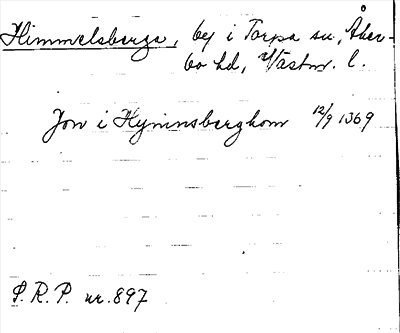 Himmelsberga, by i Torpa sn, Åker-
bo hd, Västm. l.
Jon i Hyminsberghom 12/9 1369
S.R.P. nr. 897